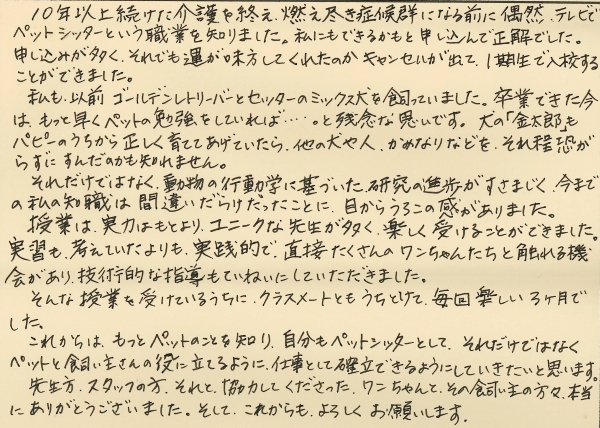 10年以上続けた介護を終え、燃え尽き症候群になる前に偶然、テレビで
ペットシッターという職業を知りました。私にもできるかもと申し込んで正解でした。
申し込みが多く、それでも運が味方してくれたのかキャンセルが出て、1期生で入校する
ことができました。
私も、以前ゴールデンレトリーバーとセッターのミックス犬を飼っていました。卒業できた今
は、もっと早くペットの勉強をしていれば……。と残念な思いです。犬の「金太郎」も
パピーのうちから正しく育ててあげていたら、他の犬や人、かみなりなどを、それ程恐が
らずにすんだのかも知れません。
それだけではなく、動物の行動学に基づいた研究の進歩がすさまじく、今まで
の私の知識は間違いだらけだったことに、目からうろこの感がありました。
授業は、実力はもとより、ユニークな先生が多く、楽しく受けることができました。
実習も、考えていたよりも、実践的で、直接たくさんのワンちゃんたちと触れる機
会があり、技術的な指導もていねいにしていただきました。
そんな授業を受けているうちに、クラスメートともうちとけて、毎回楽しい3ヶ月で
した。
これからは、もっとペットのことを知り、自分もペットシッターとして、それだけではなく
ペットと飼い主さんの役に立てるように、仕事として確立できるようにしていきたいと思います。
先生方、スタッフの方、それと、協力してくださった、ワンちゃんと、その飼い主の方々、本当
にありがとうございました。そして、これからも、よろしくお願いします。